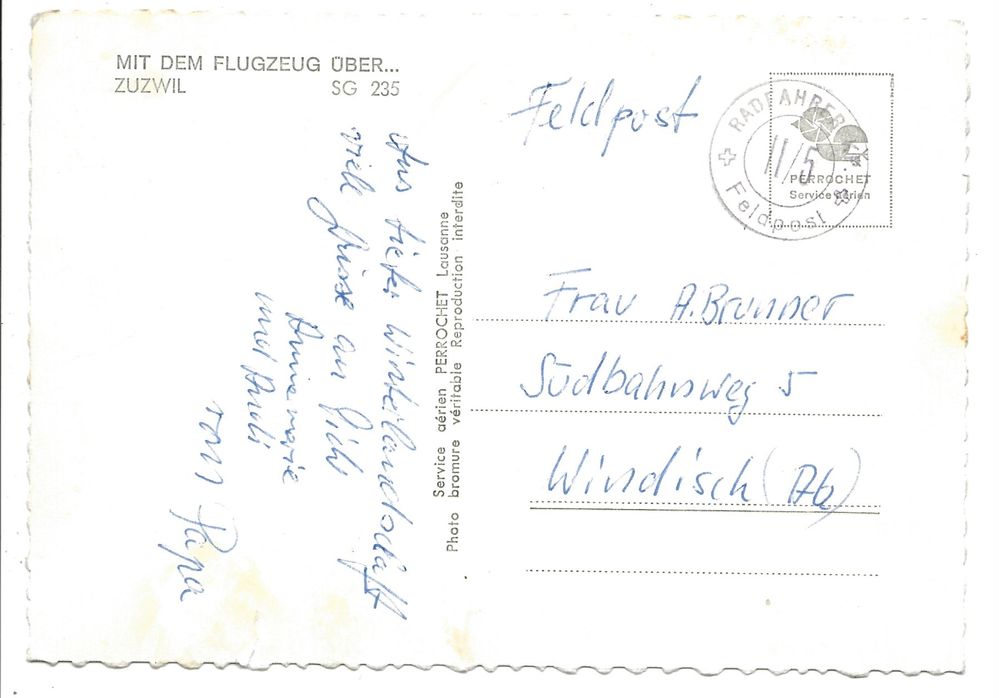 MIT DEM FLUGZEUG ÜBER...
ZUZWIL SG 235
Aus tiefer Winterlandschaft
viele Grüsse an Dich
Annemarie
und Ruedi
vom Papa
Photo Service aérien PERROCHET Lausanne
bromure véritable Reproduction interdite
Feldpost
RADFAHRER
II/5
Feldpost
PERROCHET
Service aérien
Frau A. Brunner
Südbahnweg 5
Windisch (Ag)